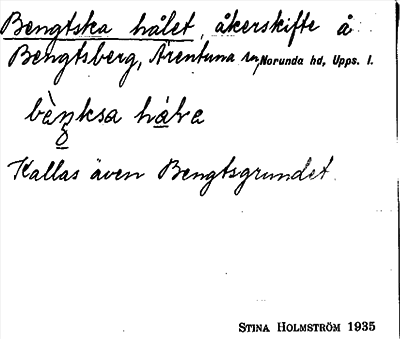 Bengtska hålet, åkerskifte å
Bengtsberg, Ärentuna sn, Norunda hd, Upps. l.
Kallas även Bengtsgrundet.
STINA HOLMSTRÖM 1935